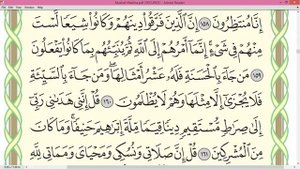 إِنَّا مُنتَظِرُونَ ١٥٨ إِنَّ الَّذِينَ فَرَّقُوا دِينَهُمْ وَكَانُوا شِيَعًا لَّسْتَ
مِنْهُمْ فِي شَيْءٍ إِنَّمَا أَمْرُهُمْ إِلَى اللَّهِ ثُمَّ يُنَبِّئُهُم بِمَا كَانُوا يَفْعَلُونَ
١٥٩ مَن جَاءَ بِالْحَسَنَةِ فَلَهُ عَشْرُ أَمْثَالِهَا وَمَن جَاءَ بِالسَّيِّئَةِ
فَلَا يُجْزَىٰ إِلَّا مِثْلَهَا وَهُمْ لَا يُظْلَمُونَ ١٦٠ قُلْ إِنَّنِي هَدَانِي رَبِّي
إِلَىٰ صِرَاطٍ مُّسْتَقِيمٍ دِينًا قِيَمًا مِّلَّةَ إِبْرَاهِيمَ حَنِيفًا وَمَا كَانَ
مِنَ الْمُشْرِكِينَ ١٦١ قُلْ إِنَّ صَلَاتِي وَنُسُكِي وَمَحْيَايَ وَمَمَاتِي لِلَّهِ